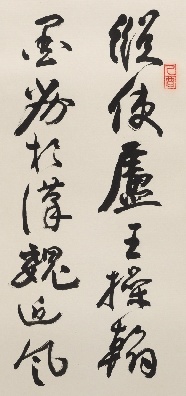 縱使盧王操翰
墨劣於漢魏近風
己酉